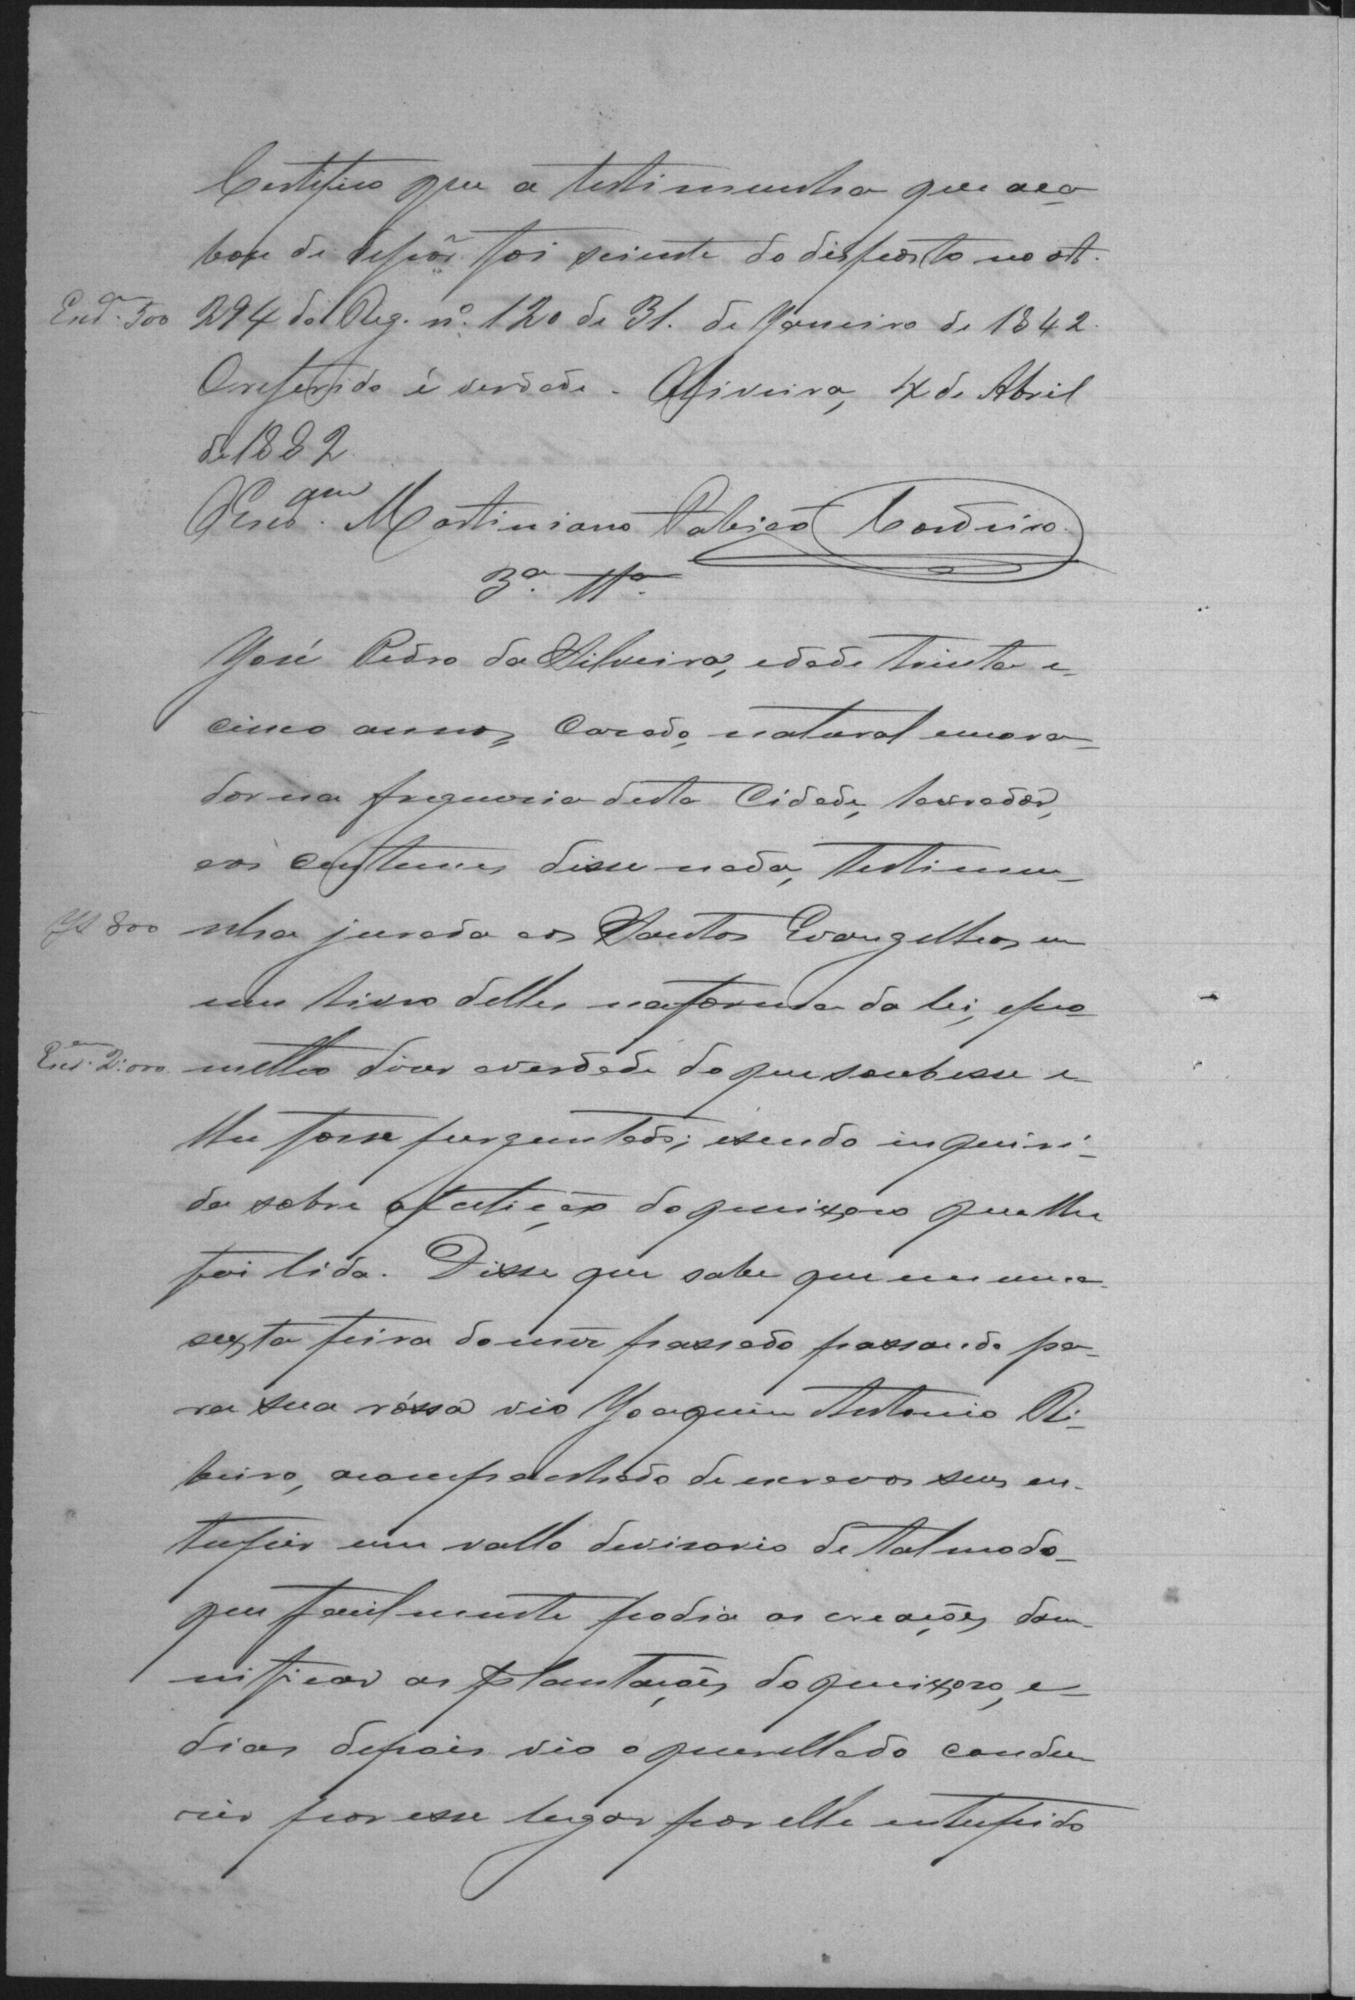 Certifico que a testimunha que aca-
bou de depôr foi sciente do disposto no art.
294 do Reg. nº. 120 de 31. de Janeiro de 1842.
O referido é verdade. Oliveira, 4 de Abril
de 1882.
O Escr.am Martiniano Cordeiro.
3ª. Ttª.
José Pedro da Silveira, edade trinta e
cinco annos, casado, natural e mora-
dor na freguesia desta Cidade, lavrador,
aos custumes disse nada, testimu-
nha jurada aos Santos Evangelhos em
um livro delles na forma da lei, e pro-
metteo dizer a verdade do que soubesse e
lhe fosse perguntado; e sendo inquiri-
da sobre a petição do queixoso que lhe
foi lida. Disse que sabe que em uma
sexta feira do mêz passado passando pa-
ra sua róssa vio Joaquim Antonio Ri-
beiro, acompanhado de escravos seus en-
tupir um vallo devisorio de tal modo
que facilmente podia as creações dam-
nificar as plantações do queixoso, e
dias depois vio o querellado condu-
sir por esse lugar por elle entupido
Escr.am 500
Jz 800
Escr.am 2:000